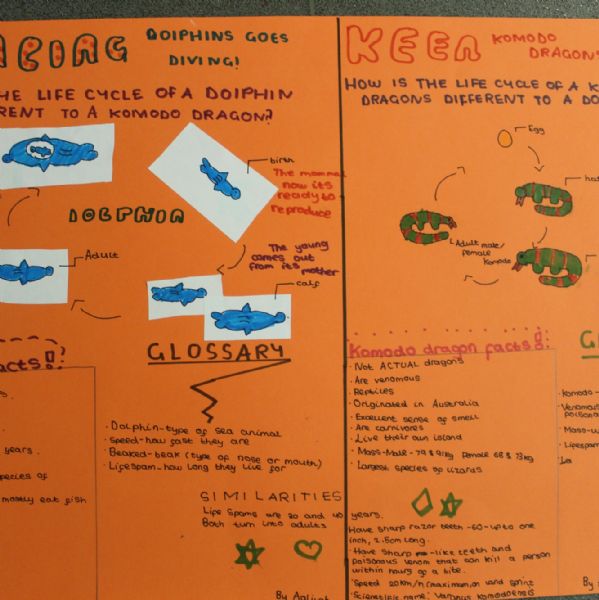 ACING DOLPHINS GOES
DIVING!
THE LIFE CYCLE OF A DOLPHIN
ERENT TO A KOMODO DRAGON?
birth
The mammal
now its
ready to
reproduce
DOLPHIN
Adult
The young
comes out
from its mother
calf
acts!?
GLOSSARY
• Dolphin-type of sea animal
• speed-how fast they are
• Beaked-beak (type of nose or mouth)
• Lifespan-how long they live for
years.
species of
mostly eat fish
SIMILARITIES
Life spans are 20 and 40 years.
Both turn into adults
KEEN KOMODO
DRAGON'
HOW IS THE LIFE CYCLE OF A K
DRAGONS DIFFERENT TO A DO
Egg
Adult male/
female
Komodo
Komodo dragon facts!:
• Not ACTUAL dragons
• Are venomous
• Reptiles
• Originated in Australia
• Excellent sense of smell
• Are carnivores
• Live their own island
• Mass-Male-79 & 91kg Female 68 & 73kg
• Largest species of lizards
Have sharp razor teeth -60-up to one
inch, 2.5cm long.
• Have sharp -like teeth and
poisonous venom that can kill a person
within hours of a bite.
• Speed 20km/h (maximum, on land sprint
• Scientific name: Varanus Komodoensis
GL
• Komodo-
• Venomous
poisono
• Mass-w
• Lifespan